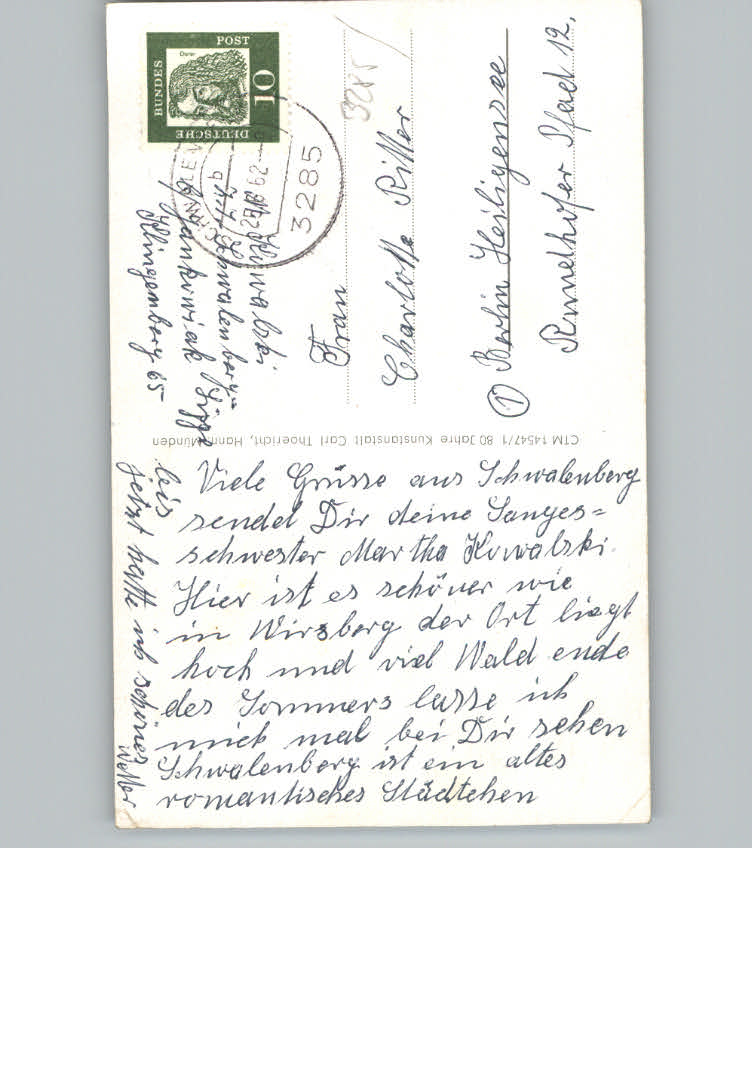 Viele Grüsse aus Schwalenberg
sendet Dir deine Sanges=
schwester Martha Kowalski.
Hier ist es schöner wie
in Wirsberg der Ort liegt
hoch und viel Wald ende
des Sommers lasse ich
mich mal bei Dir sehen
Schwalenberg ist ein altes
romantisches Städtchen
bis
jetzt hatte ich schönes
Wetter
CTM 14547/1 80 Jahre Kunstanstalt Carl Thoericht, Hann. Münden
Frau
Charlotte Ritter
1 Berlin Heiligensee
Rundhofer Pfad 12.
Kowalski
Schwalenberg
Klingenberg 65
3285
DEUTSCHE
BUNDES
POST
10
Dürer
b
62
3285